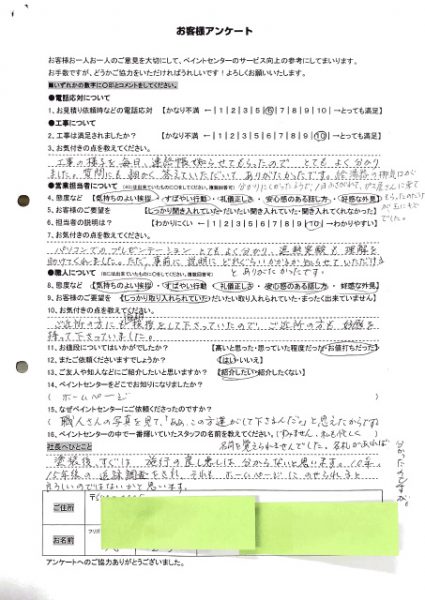 お客様アンケート
お客様お一人お一人のご意見を大切にして、ペイントセンターのサービス向上の参考にしてまいります。
お手数ですが、どうかご協力をいただければうれしいです！よろしくお願いいたします。
■いずれかの数字に○印とコメントをしてください。
●電話応対について
1. お見積依頼時などの電話応対 【かなり不満 ← |1|2|3|4|5|6|7|8|9|10| →とっても満足】
●工事について
2. 工事は満足されましたか？ 【かなり不満 ← |1|2|3|4|5|6|7|8|9|10| →とっても満足】
3. お気付きの点を教えてください。
工事の様子を毎日、連絡帳で知らせてもらったので とても よく 分かり
ました。質問にも 細かく 答えていただいて ありがたかったです。
●営業担当者について
4. 態度など 【気持ちのよい挨拶 ・ すばやい行動 ・ 礼儀正しさ ・ 安心感のある話し方 ・ 好感な外見】
5. お客様のご要望を 【しっかり聞き入れていた・だいたい聞き入れていた・聞き入れてくれなかった】
6. 担当者の説明は？ 【わかりにくい ← |1|2|3|4|5|6|7|8|9|10| →わかりやすい】
7. お気付きの点を教えてください。
パソコンでのプレゼンテーション とてもよく分かり、
助けてくれました。ただ、事前に 説明に どれぐらいかかるか知らせていただけると ありがたかったです。
●職人について
8. 態度など 【気持ちのよい挨拶 ・ すばやい行動 ・ 礼儀正しさ ・ 安心感のある話し方 ・ 好感な外見】
9. お客様のご要望を 【しっかり取り入れられていた・だいたい取り入れられていた・まったく出来ていません】
10. お気付きの点を教えてください。
ご近所の方にも 挨拶をして下さっていたので、ご近所の方も 好感を
持って下さっていました。
11. お値段についてはいかがでしたか？ 【高いと思った・思っていた程度だった・お値打ちだった】
12. またご依頼くださいますでしょうか？ 【はい・いいえ】
13. ご友人や知人などにご紹介したいと思いますか？ 【紹介したい・紹介したくない】
14. ペイントセンターをどこでお知りになりましたか？
( ホームページ )
15. なぜペイントセンターにご依頼くださったのですか？
( 職人さんの写真を見て「ああ、この方達がして下さるんだ。」と思えたからです)
16. ペイントセンターの中で一番輝いていたスタッフの名前を教えてください。
(すみません、
名前を覚えられませんでした。名札があれば 分かったのですが。
社長へひとこと
塗装後、すぐには 施行の良し悪しは 分からないと思います。10年、
15年後の 追跡調査をされ、それも ホームページ に のせられると
よろしいのではないかと思います。
ご住所
〒
お名前
フリガ
アンケートへのご協力ありがとうございました。